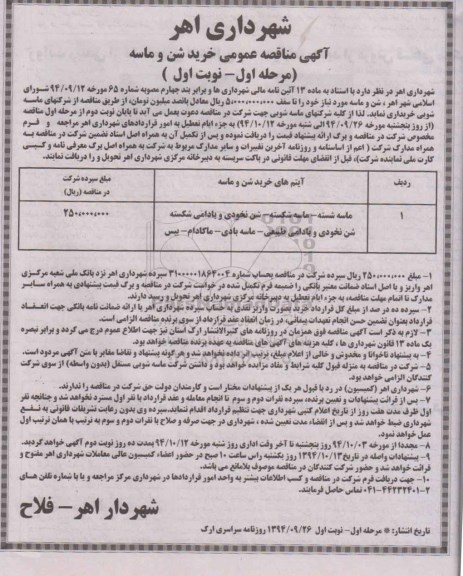 شهرداری اهر
آگهی مناقصه عمومی خرید شن و ماسه
(مرحله اول- نوبت اول )
شهرداری اهر در نظر دارد با استناد به ماده ۱۳ آئین نامه مالی شهرداری ها و برابر بند چهارم مصوبه شماره ۶۵ مورخه ۹۴/۰۹/۱۲ شورای
اسلامی شهر اهر ، شن و ماسه مورد نیاز خود را تا سقف ۵/۰۰۰/۰۰۰/۰۰۰ ریال معادل پانصد میلیون تومان، از طریق مناقصه از شرکتهای ماسه
شویی خریداری نماید. لذا از کلیه شرکتهای ماسه شویی جهت شرکت در مناقصه دعوت بعمل می آید تا پایان نوبت دوم از مرحله اول مناقصه
(از روز پنجشنبه مورخه ۹۴/۰۹/۲۶ الی شنبه مورخه ۹۴/۱۰/۱۲) به جزء ایام تعطیل به امور قراردادهای شهرداری اهر مراجعه و فرم
مخصوص شرکت در مناقصه و برگ ارائه پیشنهاد قیمت را دریافت نموده و پس از تکمیل آن به همراه اصل اسناد تضمین شرکت در مناقصه به
همراه مدارک شرکت ( اعم از اساسنامه و روزنامه آخرین تغییرات و سایر مدارک مربوط به شرکت به همراه اصل برگ معرفی نامه و کپی
کارت ملی نماینده شرکت)، قبل از انقضای مهلت قانونی در پاکت سربسته به دبیرخانه مرکزی شهرداری اهر تحویل و رسید را دریافت نمایند.
ردیف آیتم های خرید شن و ماسه مبلغ سپرده شرکت
در مناقصه (ریال)
۱ ماسه شسته- ماسه شکسته- شن نخودی و بادامی شکسته ۲۵۰,۰۰۰,۰۰۰
شن نخودی و بادامی طبیعی- ماسه بادی- ماکادام- بیس
۱- مبلغ ۲۵۰/۰۰۰/۰۰۰ ریال سپرده شرکت در مناقصه بحساب شماره ۳۱۰۰۰۰۰۱۸۶۴۰۰۴ سپرده شهرداری اهر نزد بانک ملی شعبه مرکزی
اهر واریز و یا اصل اسناد ضمانت معتبر بانکی را ضمیمه فرم تکمیل شده در خواست شرکت در مناقصه و برگ قیمت پیشنهادی به همراه سایر
مدارک تا اتمام مهلت مناقصه، به جزء ایام تعطیل به دبیرخانه مرکزی شهرداری اهر تحویل و رسید دارند.
۲- سپرده ده در صد از مبلغ کل قرارداد خرید بصورت واریز نقدی به حساب سپرده شهرداری اهر یا ارائه ضمانت نامه بانکی جهت انعقاد
قرارداد بعنوان تضمین حسن انجام تعهدات پیمانی، در زمان انعقاد عقد قرارداد از سوی برنده مناقصه الزامی است.
۳- لازم به ذکر است آگهی مناقصه فوق همزمان در روزنامه های کثیرالانتشار ارک استان نیز جهت اطلاع عموم درج می گردد و برابر تبصره
یک ماده ۱۳ قانون شهرداری ها ، کلیه هزینه های آگهی های مناقصه به عهده برنده مناقصه خواهد بود.
۴- به پیشنهاد ناخوانا و مخدوش و خالی از اعلام مبلغ، ترتیب اثر داده نخواهد شد و هر گونه پیشنهاد و تقاضا مغایر با متن آگهی مردود است.
۵- شرکت در مناقصه به منزله قبول کلیه شرایط و مفاد مزایده خواهد بود و داشتن شرکت ماسه شویی مستقل (بدون واسطه) از سوی شرکت
کنندگان الزامی خواهد بود.
۶- شهرداری اهر (کمیسیون) در رد یا قبول هر یک از پیشنهادات مختار است و کارمندان دولت حق شرکت در مناقصه را ندارند.
۷- پس از قرائت پیشنهادات و تعیین برنده، سپرده نفرات دوم و سوم تا انجام معامله و عقد قرارداد با نفر اول مسترد نخواهد شد و چنانچه نفر
اول ظرف مدت هفت روز از تاریخ اعلام کتبی شهرداری جهت تنظیم قرارداد اقدام ننماید،سپرده وی بدون رعایت تشریفات قانونی به نفع
شهرداری ضبط خواهد شد و پس از انقضاء مدت تعیین شده ، شهرداری در جهت صرفه و صلاح با نفرات دوم و سوم به ترتیب با همان ترتیب اول
عمل خواهد نمود.
۸- مجددا از مورخه ۹۴/۱۰/۰۳ روز پنجشنبه تا آخر وقت اداری روز شنبه مورخه ۹۴/۱۰/۱۲ بمدت ده روز نوبت دوم آگهی خواهد گردید.
۹- پیشنهادات واصله در تاریخ ۱۳۹۴/۱۰/۱۳ روز یکشنبه راس ساعت ۱۰ صبح در حضور اعضاء کمیسیون عالی معاملات شهرداری اهر مفتوح و
قرائت خواهد شد و حضور شرکت کنندگان در مناقصه موصوف بلامانع می باشد.
۱۰- جهت دریافت فرم شرکت در مناقصه و کسب اطلاعات بیشتر به واحد امور قراردادها در شهرداری مرکز مراجعه و یا با شماره تلفن های
۲-۰۴۱-۴۴۲۳۲۴۰۱ تماس حاصل فرمایند.
شهردار اهر- فلاح
تاریخ انتشار: * مرحله اول- نوبت اول ۱۳۹۴/۰۹/۲۶ روزنامه سراسری ارک